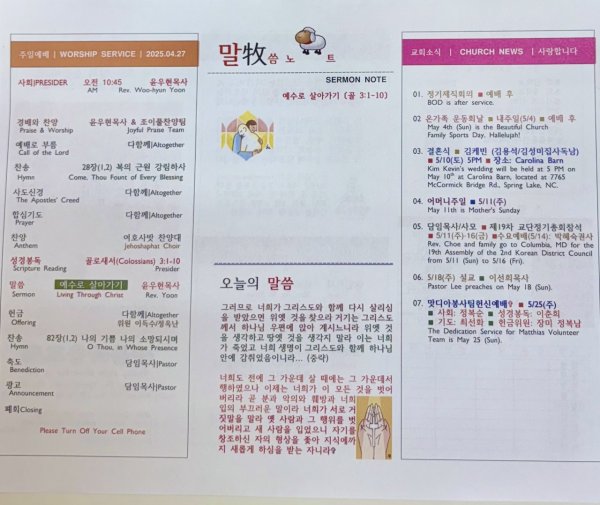 주일예배 | WORSHIP SERVICE | 2025.04.27
사회|PRESIDER 오전 10:45 윤우현목사
AM Rev. Woo-hyun Yoon
경배와 찬양 윤우현목사 & 조이풀찬양팀
Praise & Worship Joyful Praise Team
예배로 부름 다함께|Altogether
Call of the Lord
찬송 28장(1,2) 복의 근원 강림하사
Hymn Come, Thou Fount of Every Blessing
사도신경 다함께|Altogether
The Apostles' Creed
합심기도 다함께|Altogether
Prayer
찬양 여호사밧 찬양대
Anthem Jehoshaphat Choir
성경봉독 골로새서(Colossians) 3:1-10
Scripture Reading Presider
말씀 예수로 살아가기 윤우현목사
Sermon Living Through Christ Rev. Yoon
헌금 다함께|Altogether
Offering 위원 이득수/정옥난
찬송 82장(1,2) 나의 기쁨 나의 소망되시며
Hymn O Thou, in Whose Presence
축도 담임목사|Pastor
Benediction
광고 담임목사|Pastor
Announcement
폐회Closing
Please Turn Off Your Cell Phone
말牧씀노트
SERMON NOTE
예수로 살아가기 (골 3:1-10)
오늘의 말씀
그러므로 너희가 그리스도와 함께 다시 살리심
을 받았으면 위엣 것을 찾으라 거기는 그리스도
께서 하나님 우편에 앉아 계시느니라 위엣 것
을 생각하고 땅엣 것을 생각지 말라 이는 너희
가 죽었고 너희 생명이 그리스도와 함께 하나님
안에 감취었음이니라... (중략)
너희도 전에 그 가운데 살 때에는 그 가운데서
행하였으나 이제는 너희가 이 모든 것을 벗어
버리라 곧 분과 악의와 훼방과 너희
입의 부끄러운 말이라 너희가 서로 거
짓말을 말라 옛 사람과 그 행위를 벗
어버리고 새 사람을 입었으니 자기를
창조하신 자의 형상을 좇아 지식에까
지 새롭게 하심을 받는 자니라
교회소식 | CHURCH NEWS | 사랑합니다
01. 정기제직회의 ■ 예배 후
BOD is after service.
02. 온가족 운동회날 ■ 내주일(5/4) ■ 예배 후
May 4th (Sun) is the Beautiful Church
Family Sports Day. Hallelujah!
03. 결혼식 ■ 김케빈 (김용석/김성미집사독남)
■ 5/10(토) 5PM ■ 장소: Carolina Barn
Kim Kevin's wedding will be held at 5 PM on
May 10th at Carolina Barn, located at 7765
McCormick Bridge Rd., Spring Lake, NC.
04. 어머니주일 ■ 5/11(주)
May 11th is Mother's Sunday
05. 담임목사/사모 ■ 제19차 교단정기총회참석
■ 5/11(주)-16(금) ■수요예배(5/14): 박혜숙권사
Rev. Choe and family go to Columbia, MD for the
19th Assembly of the 2nd Korean District Council
from 5/11 (Sun) to 5/16 (Fri).
06. 5/18(주) 설교 ■ 이선희목사
Pastor Lee preaches on May 18 (Sun).
07. 맛디아봉사팀헌신예배 ■ 5/25(주)
■ 사회: 정복순 ■ 성경봉독: 이춘희
■ 기도: 최선화 ■ 헌금위원: 장미 정복남
The Dedication Service for Matthias Volunteer
Team is May 25 (Sun).